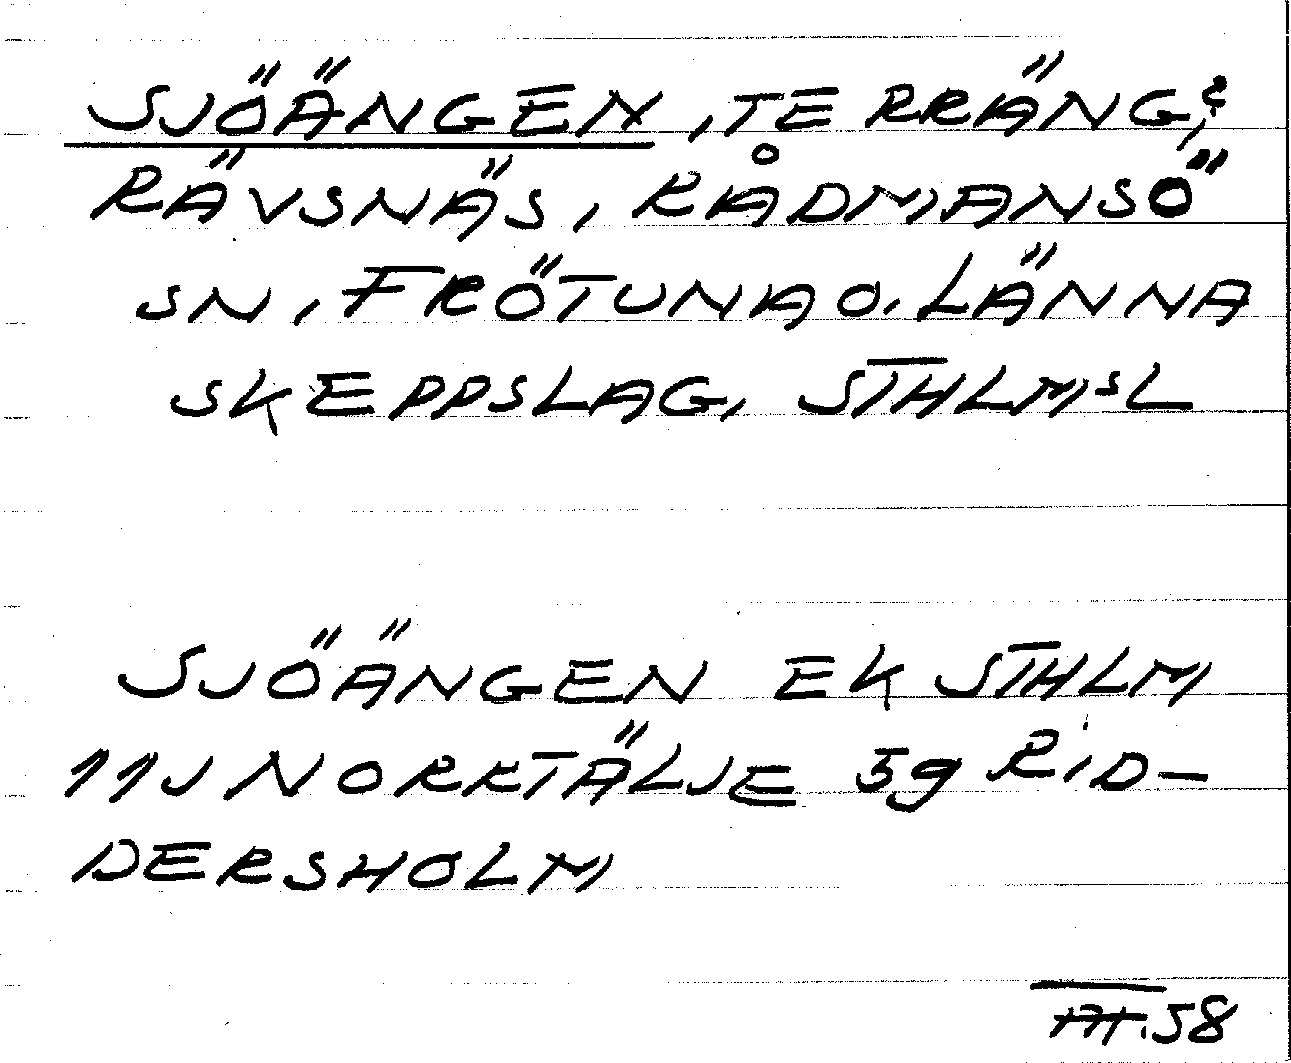 SJÖÄNGEN, TERRÄNG, &
RÄVSNÄS, RÅDMANSÖ
SN, FRÖTUNA O. LÄNNA
SKEPPSLAG, STHLMSL
SJÖÄNGEN EK STHLM
11J NORRTÄLJE 5g RID-
DERSHOLM
58